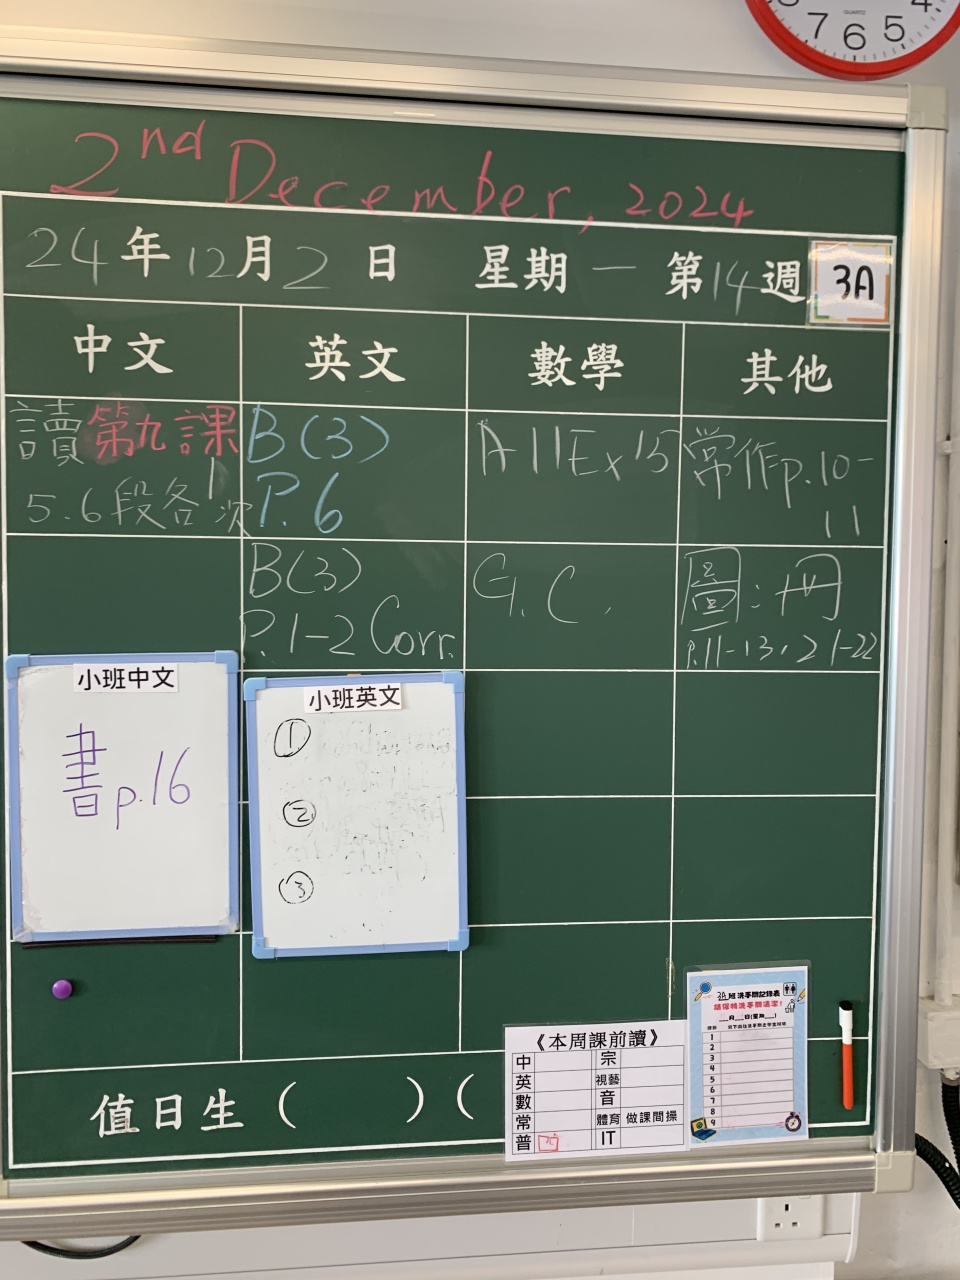 7 6 5 4
QUARTZ
2nd December, 2024
24年12月2日 星期一 第14週 3A
中文 英文 數學 其他
讀第九課
5.6段各1次
B(3)
P.6
A11Ex15
常作p.10-
11
B(3)
P.1-2 Corr.
G.C.
圖:冊
P.11-13,21-22
小班中文
書p.16
小班英文
①
②
③
值日生( )(
《本周課前讀》
中 宗
英 視藝
數 音
常 體育 做課間操
普 IT
3A班洗手間記錄表
請保持洗手間清潔!
__月__日(星期__)
1
2
3
4
5
6
7
8
9